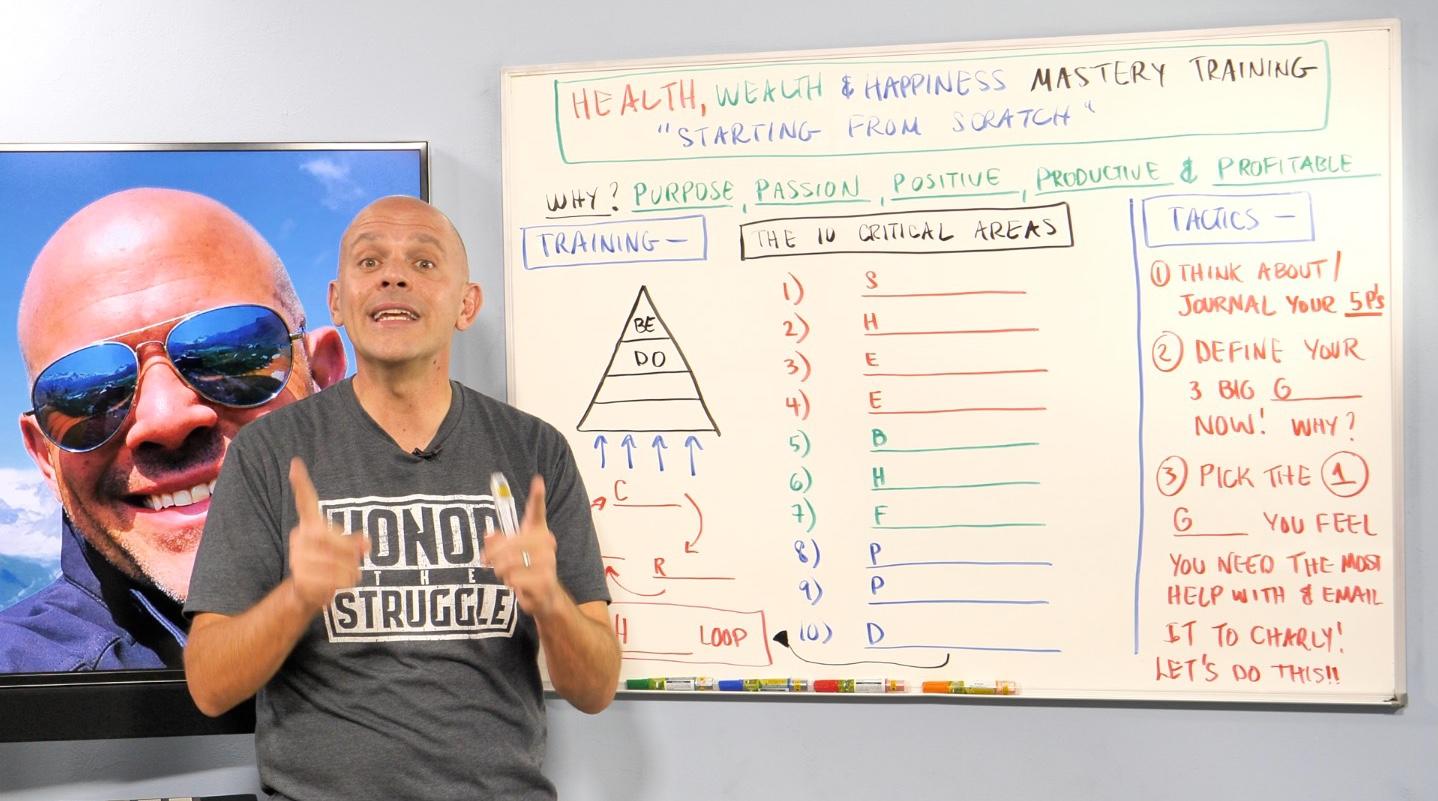 HEALTH, WEALTH & HAPPINESS MASTERY TRAINING
"STARTING FROM SCRATCH"
WHY? PURPOSE, PASSION, POSITIVE, PRODUCTIVE & PROFITABLE
TRAINING -
BE
DO
C
R
H LOOP
THE 10 CRITICAL AREAS
1) S
2) H
3) E
4) E
5) B
6) H
7) F
8) P
9) P
10) D
TACTICS -
① THINK ABOUT/
JOURNAL YOUR 5P's
② DEFINE YOUR
3 BIG G
NOW! WHY?
③ PICK THE ①
G YOU FEEL
YOU NEED THE MOST
HELP WITH & EMAIL
IT TO CHARLY!
LET'S DO THIS!!
HONOR
THE
STRUGGLE